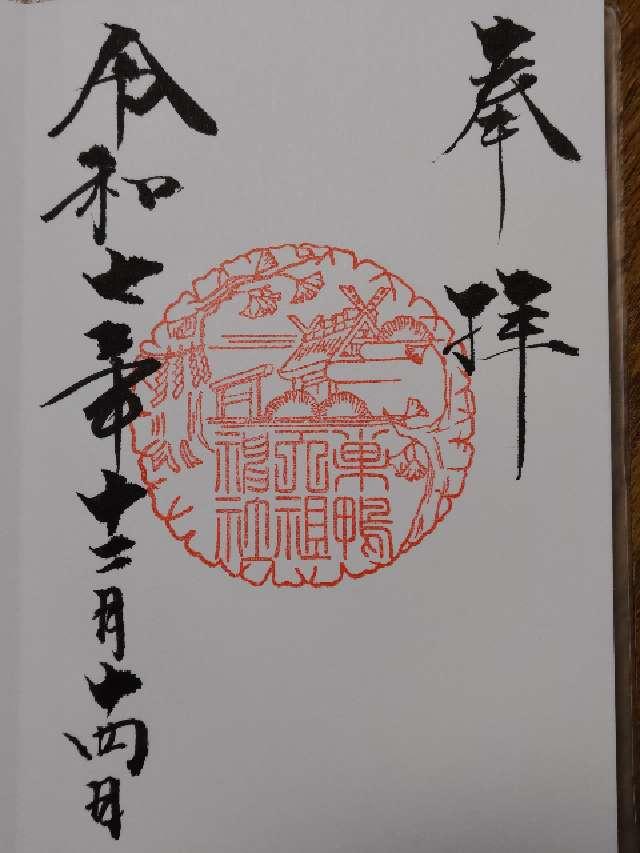 奉拝
巣鴨
天祖
神社
令和七年十二月十四日